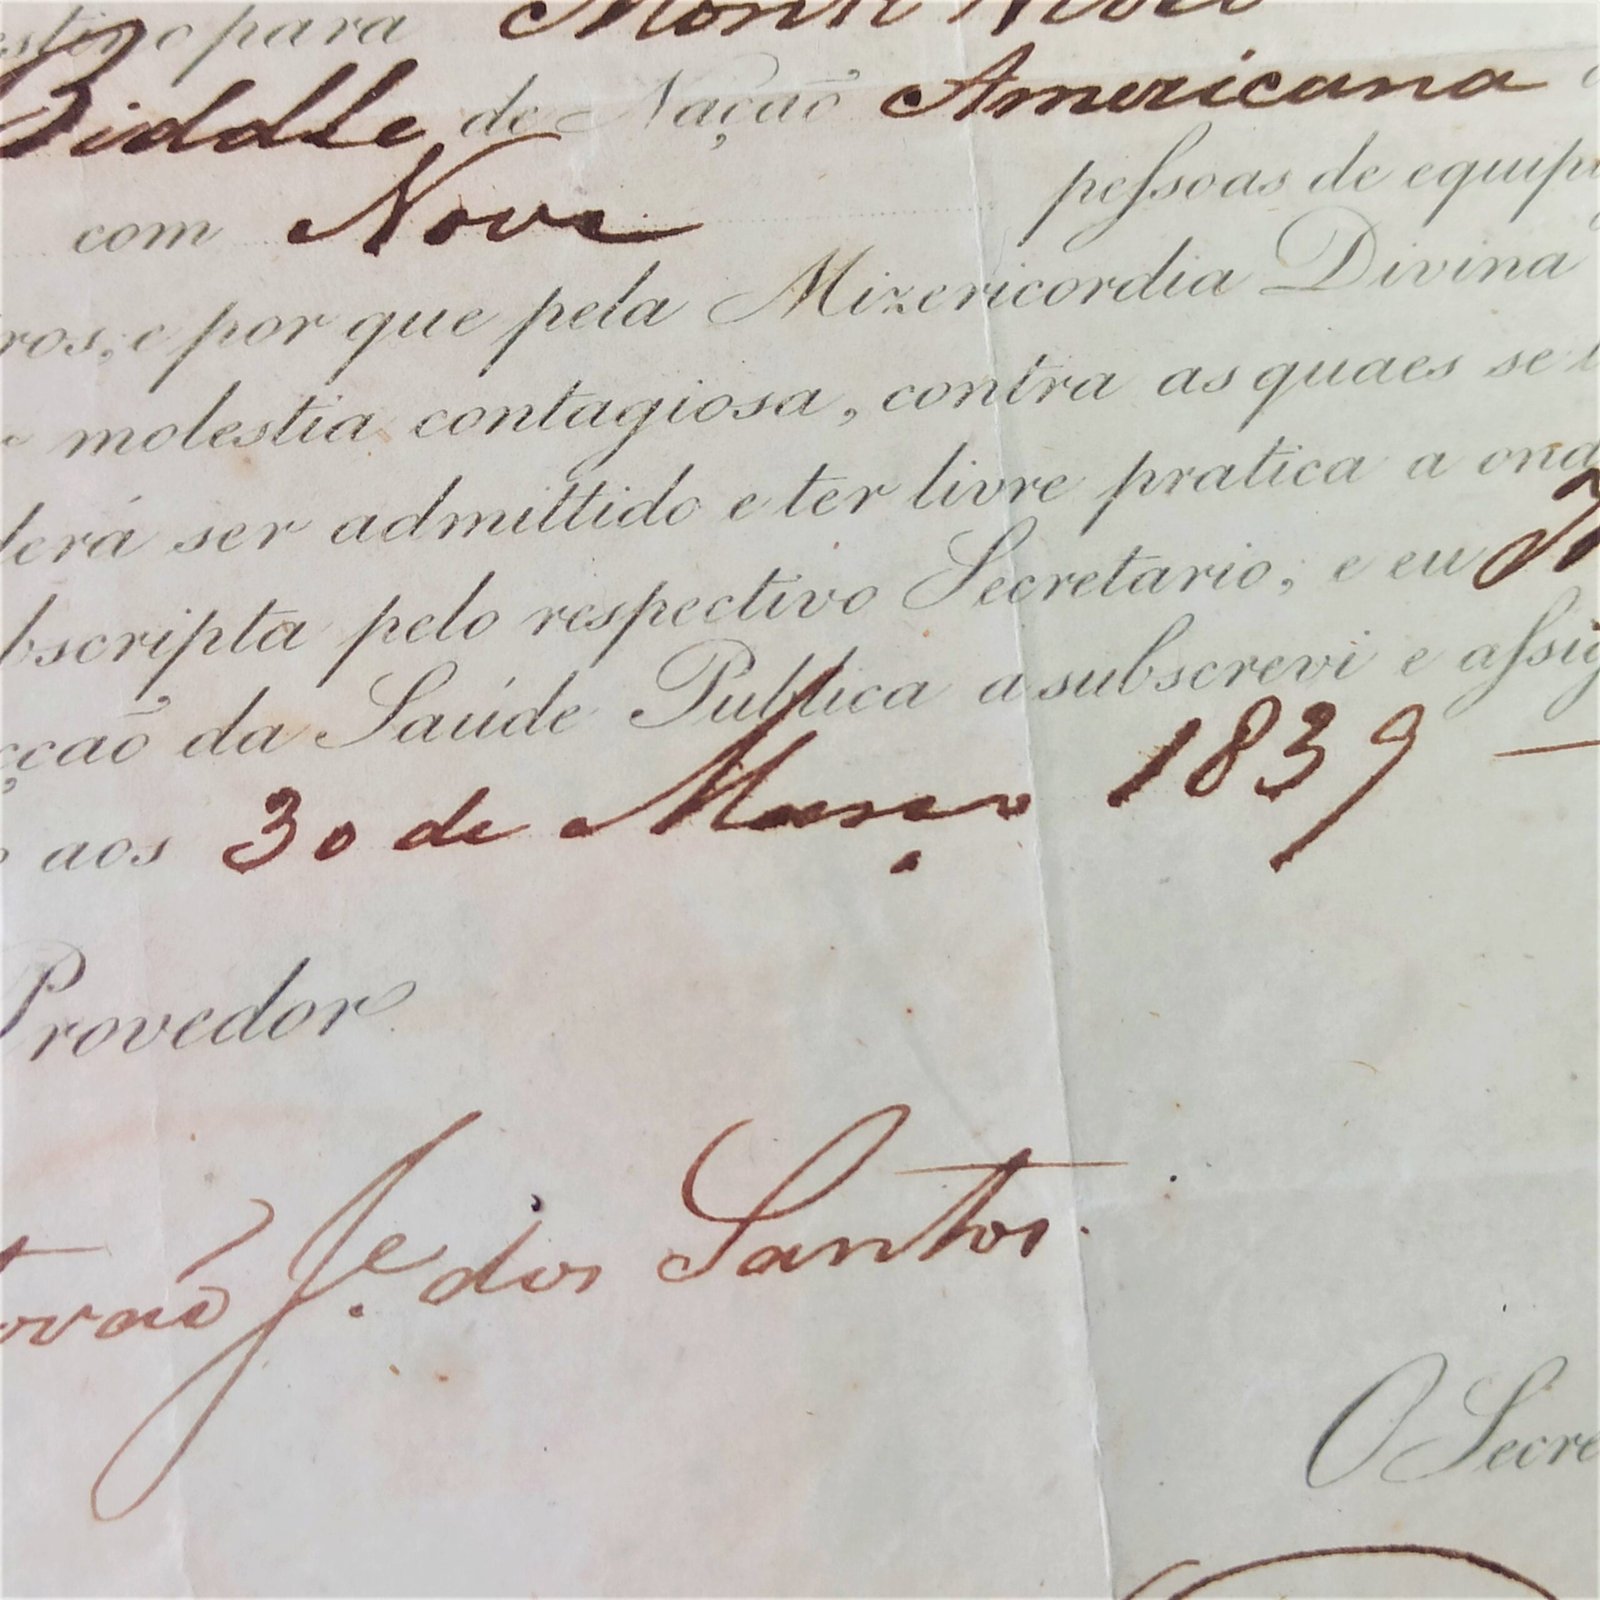 para Monte Video
Biddle de Nação Americana
com Nove pessoas de equip
ros, e por que pela Mizericordia Divina
molestia contagiosa, contra as quaes se
derá ser admittido e ter livre pratica a ond
bscripta pelo respectivo Secretario, e eu
cção da Saúde Publica a subscrevi e assig
aos 30 de Março 1839
Provedor
Je. dos Santos.
O Secre